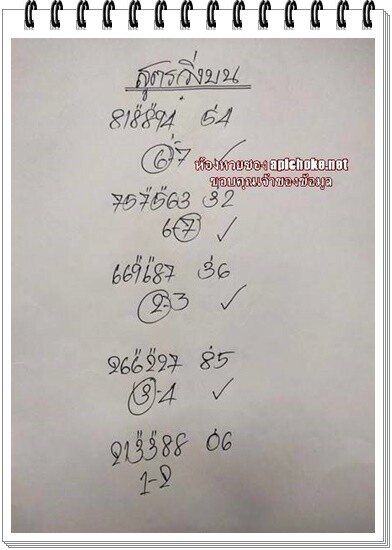 สูตรวิ่งบน
818894 54
6-7 ✓
ห้องหวยซอง apichoke.net
ขอบคุณเจ้าของข้อมูล
757563 32
6-7 ✓
669687 36
2-3 ✓
266227 85
3-4 ✓
213388 06
1-2